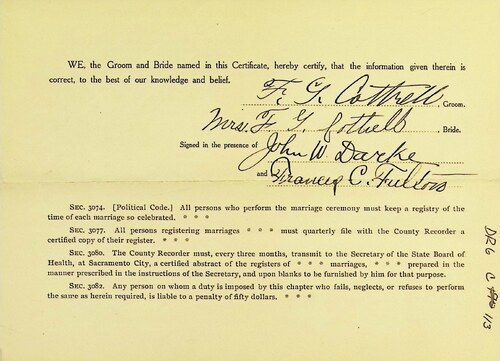 WE, the Groom and Bride named in this Certificate, hereby certify, that the information given therein is
correct, to the best of our knowledge and belief.
F. G. Cottrell, Groom.
Mrs. F. G. Cottrell, Bride.
Signed in the presence of John W. Darke
and Francis C. Fultons
SEC. 3074. [Political Code.] All persons who perform the marriage ceremony must keep a registry of the
time of each marriage so celebrated. * * *
SEC. 3077. All persons registering marriages * * * must quarterly file with the County Recorder
a certified copy of their register. * * *
SEC. 3080. The County Recorder must, every three months, transmit to the Secretary of the State Board of
Health, at Sacramento City, a certified abstract of the registers of * * * marriages, * * * prepared in the
manner prescribed in the instructions of the Secretary, and upon blanks to be furnished by him for that purpose.
SEC. 3082. Any person on whom a duty is imposed by this chapter who fails, neglects, or refuses to perform
the same as herein required, is liable to a penalty of fifty dollars. * * *
113